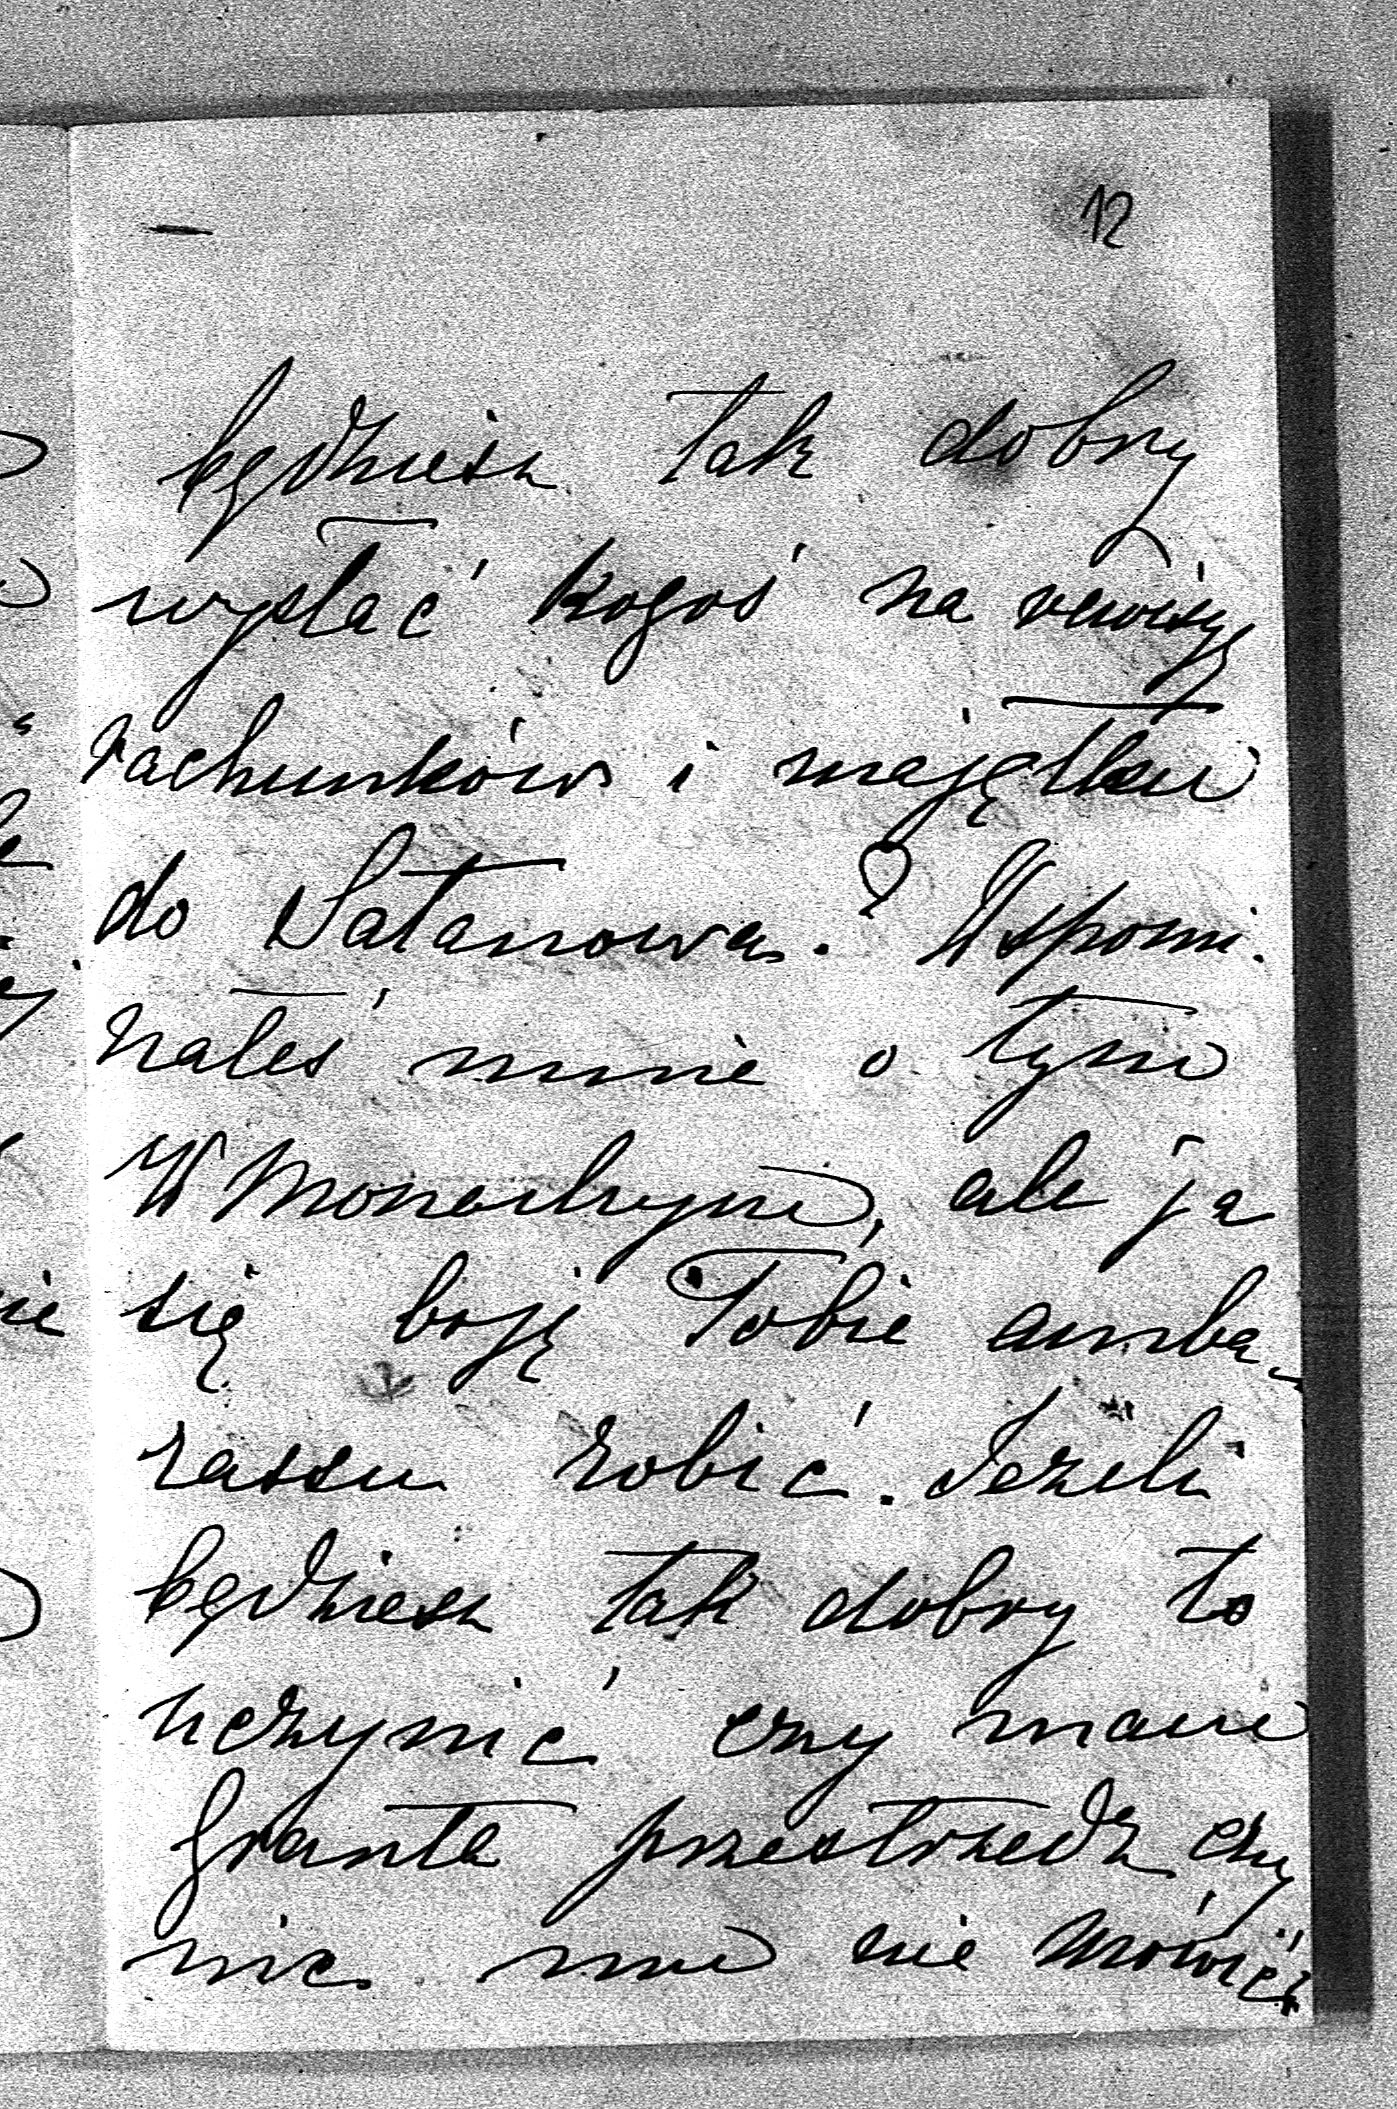 12
będziesz tak dobry
wysłać kogoś na rewizyę
rachunków i majątku
do Satanowa? Wspomi-
nałeś mnie o tym
W Monachym, ale ja
się boję Tobie amba-
rassu robić. Jeżeli
będziesz tak dobry to
uczynić czy mam
Granta przestrzedz czy
nic mu nie mówić?